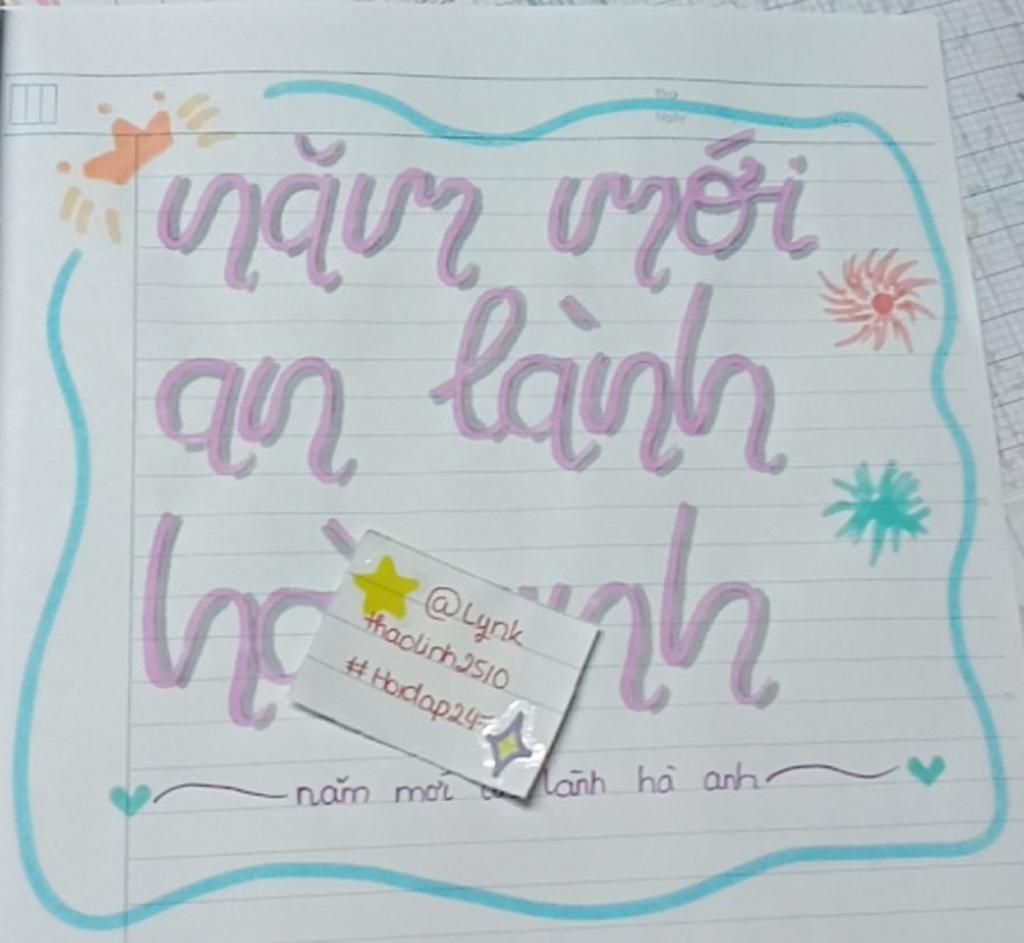 Thứ
Ngày
năm mới
an lành
hà anh
@Lynk
thaolinh2510
#Hoidap247
năm mới an lành hà anh